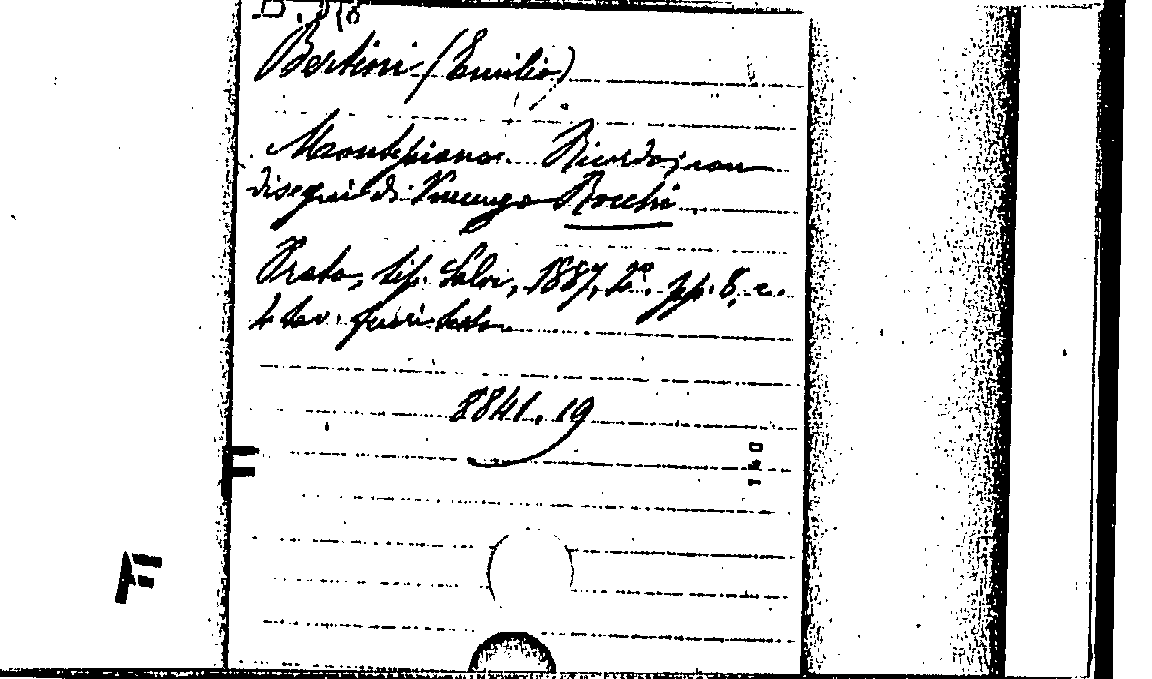 Bertini (Emilio)
Montepiano. Ricordo, con
disegni di Vincenzo Rocchi
Prato, tip. Salvi, 1887, 4º. pp. 8, e.
4 tav. fuori testo
8841. 19
140
F
F